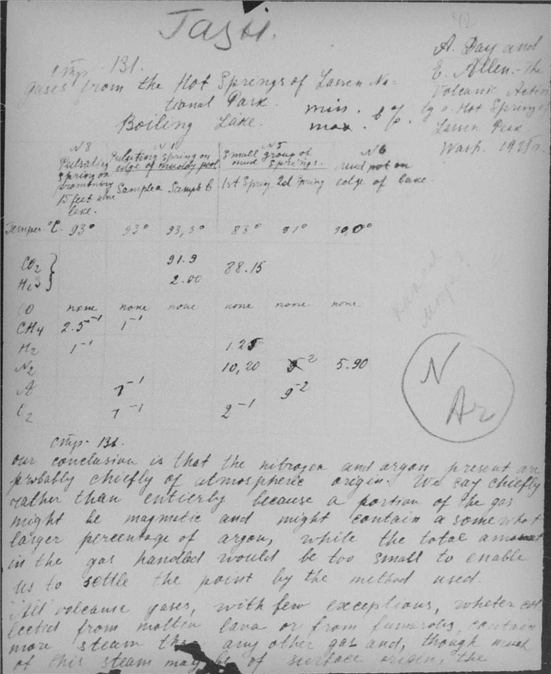 стр. 131.
A. Day and
E. Allen. The
Volcanic Activ
a. Hot Springs of
Lassen Peak
Wash. 1925г.
Gases from the Hot Springs of Lassen Na-
tional Park.
Boiling Lake.
min.
max.
N 8
Pulsating
Spring on
15 feet
lake.
Pulsating Spring on
edge of muddy pool
Sample a Sample b
N 5
Small group of
mud springs.
1st Spring 2d Spring
N 6
mud pot on
edge of lake.
Temper °C. 93° 93° 93,5° 88° 91° 90,0°
CO2 } 91.9 88.15
H2S } 2.00
CO none none none none none none
CH4 2.5-1 1-1
H2 1-1 1.25
N2 10,20 5.90
A 1-1 9-2
1-1 2-1
N
Ar
стр. 136.
our conclusion is that the nitrogen and argon present are
probably chiefly of atmospheric origin. We say chiefly
rather than entierly because a portion of the gas
might be magmetic and might contain a somewhat
larger percentage of argon, while the total amount
in the gas handled would be too small to enable
us to settle the point by the method used.
All volcanic gases, with few exceptions, wheter col
lected from molten lava or from fumaroles, contain
more steam than any other gas and, though much
of this steam may be of surface origin, the